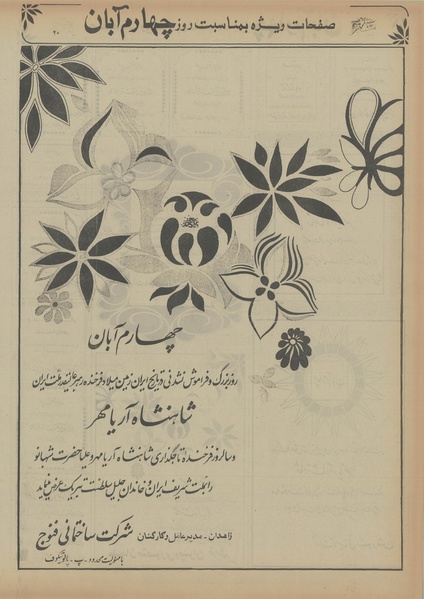 صفحات ویژه بمناسبت روز چهارم آبان
۲۰
چهارم آبان
روز بزرگ و فراموش نشدنی تاریخ ایران زمین میلاد فرخنده رهبر عالیقدر ملت ایران
شاهنشاه آریامهر
و سالروز فرخنده تاجگذاری شاهنشاه آریامهر و علیاحضرت شهبانو
را بملت شریف ایران و خاندان جلیل سلطنت تبریک عرض مینماید
زاهدان - مدیرعامل و کارکنان شرکت ساختمانی فنوج
با مسئولیت محدود - پ -